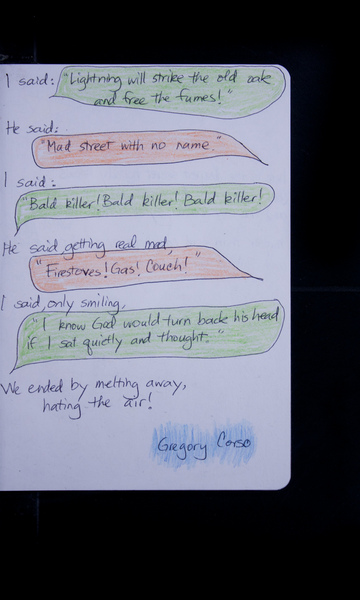 I said: "Lightning will strike the old oak
and free the fumes!"
He said:
"Mad street with no name."
I said:
"Bald killer! Bald killer! Bald killer!
He said getting real mad,
"Firestoves! Gas! Couch!"
I said, only smiling,
"I know God would turn back his head
if I sat quietly and thought."
We ended by melting away,
hating the air!
Gregory Corso